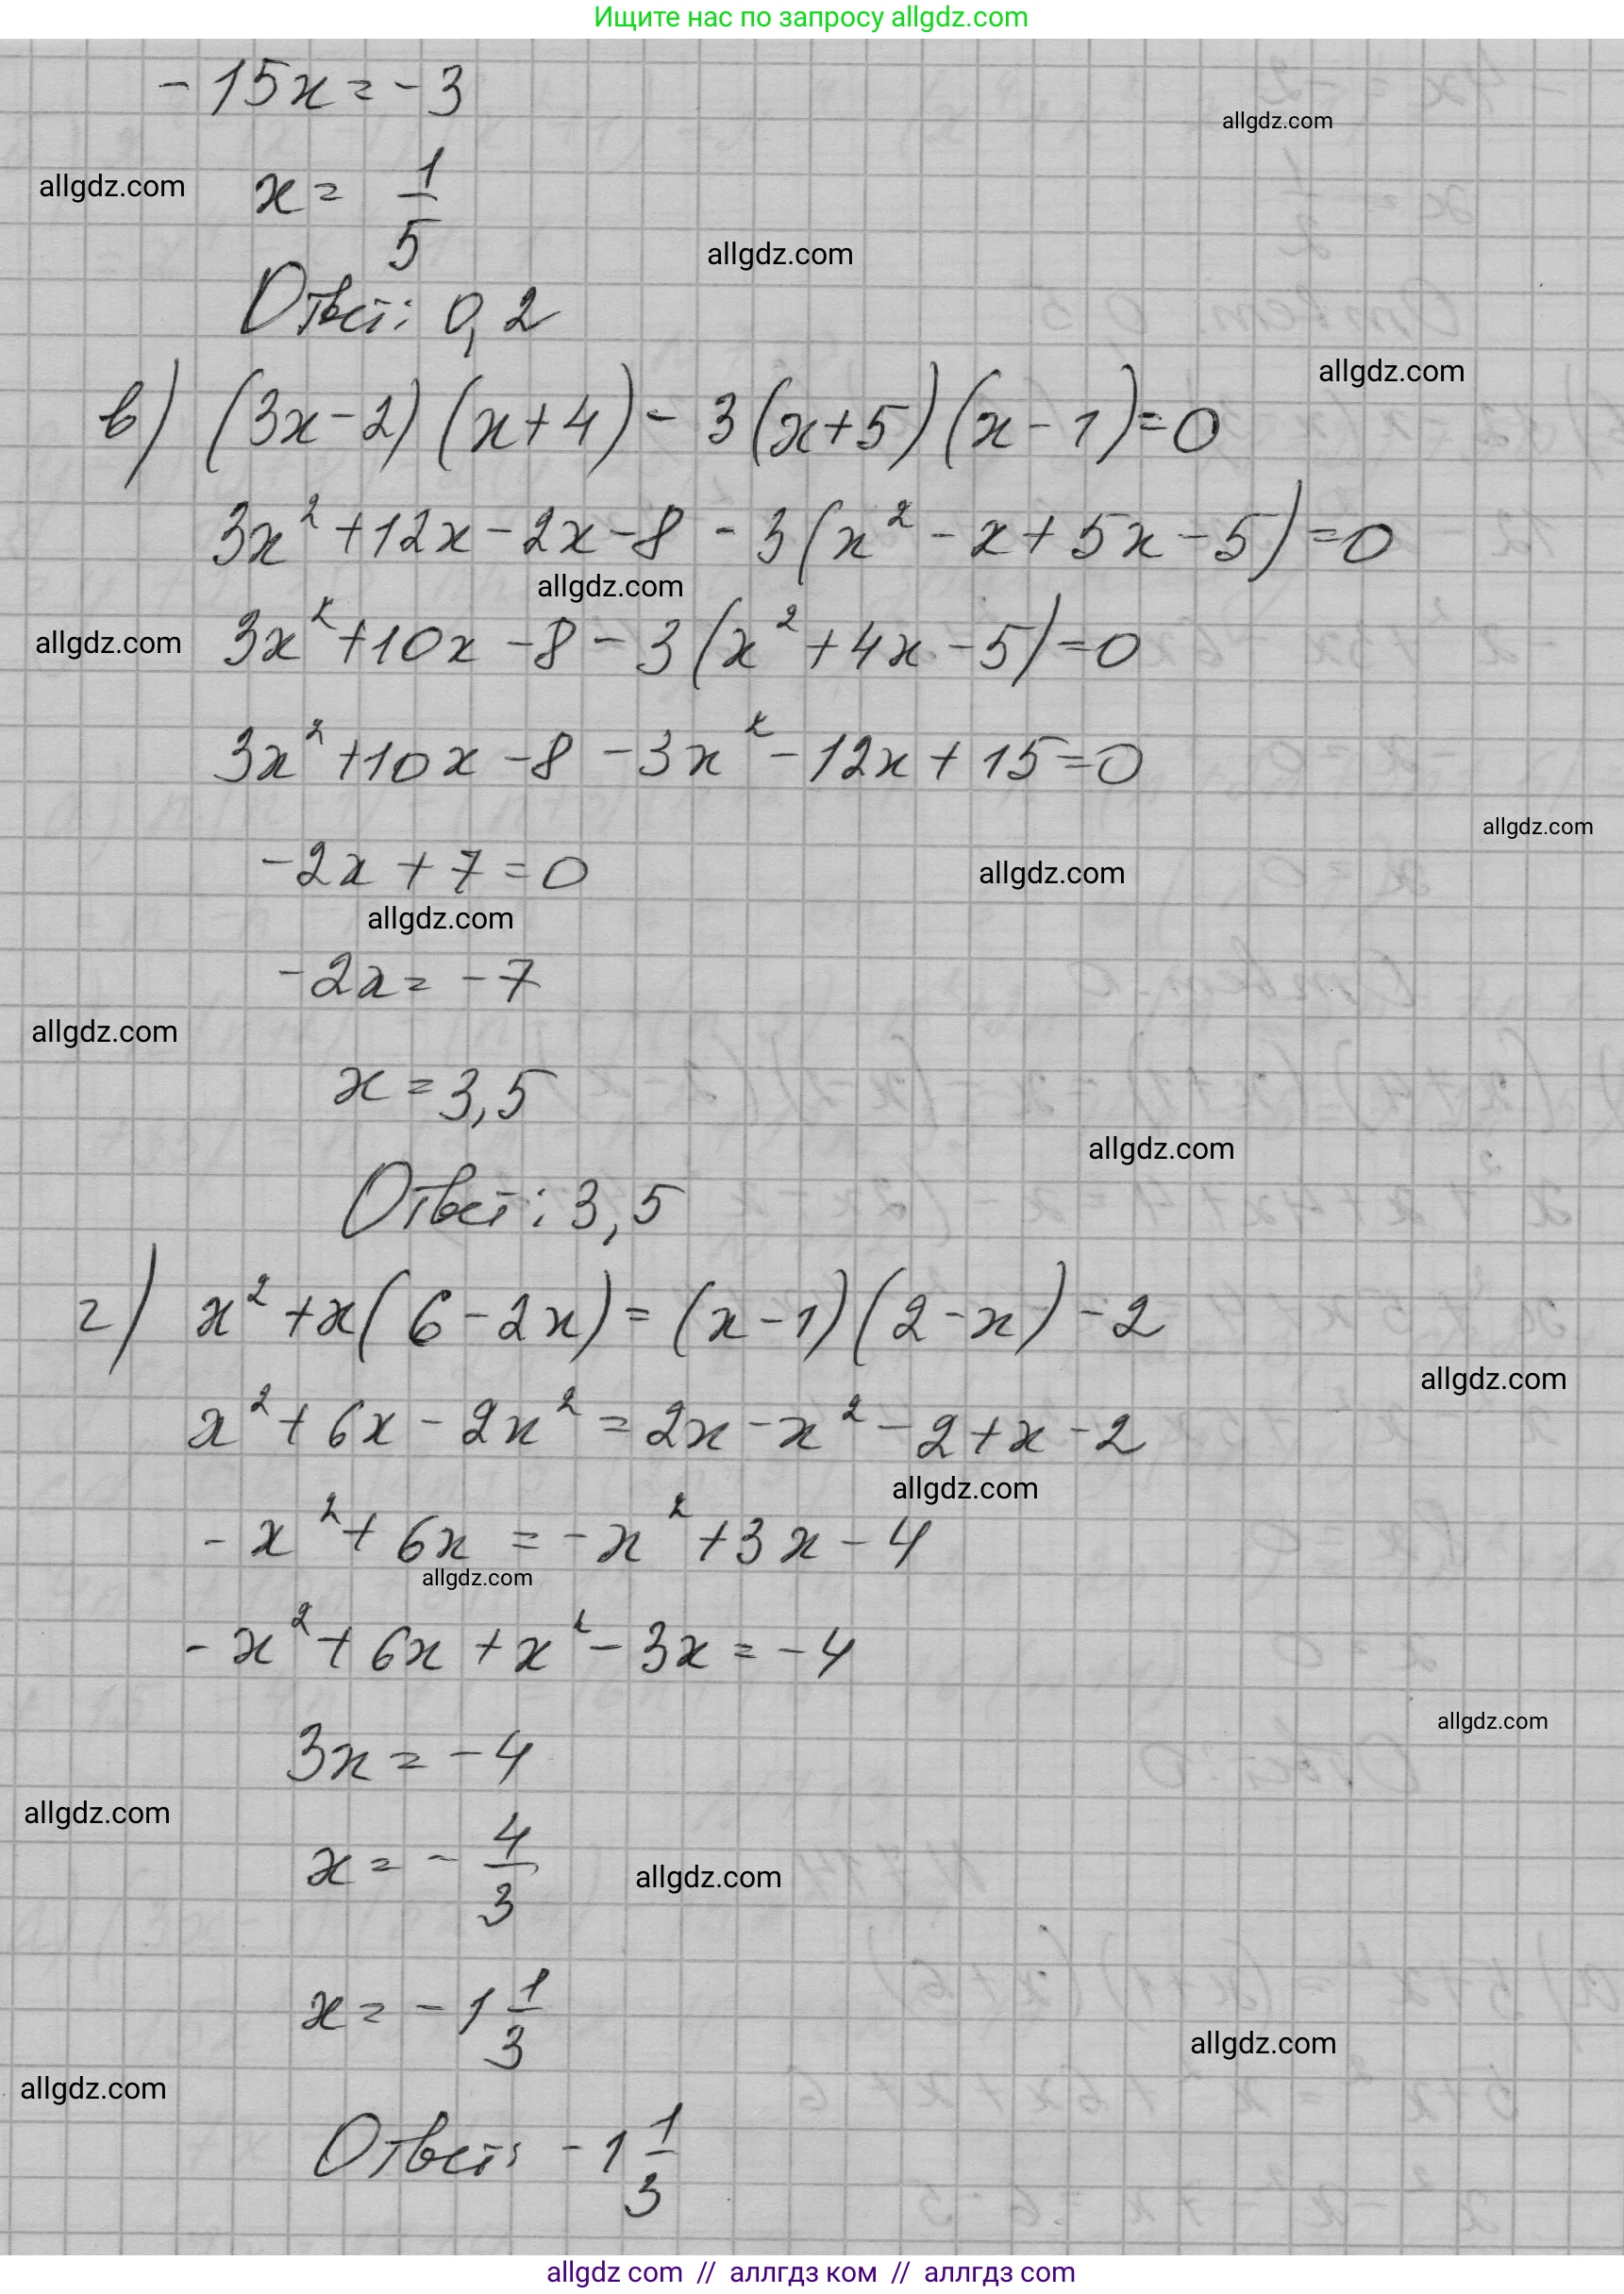 Ищите нас по запросу allgdz.com
-15x = -3
allgdz.com
allgdz.com
x = 1/5
allgdz.com
Ответ: 0,2
allgdz.com
в) (3x-2)(x+4) - 3(x+5)(x-1)=0
3x²+12x-2x-8 - 3(x²-x+5x-5)=0
allgdz.com
allgdz.com
3x²+10x-8-3(x²+4x-5)=0
3x²+10x-8-3x²-12x+15=0
allgdz.com
-2x+7=0
allgdz.com
allgdz.com
-2x = -7
allgdz.com
x = 3,5
allgdz.com
Ответ: 3,5
г) x²+x(6-2x)=(x-1)(2-x)-2
allgdz.com
x²+6x-2x²=2x-x²-2+x-2
allgdz.com
-x²+6x=-x²+3x-4
allgdz.com
-x²+6x+x²-3x=-4
allgdz.com
3x=-4
allgdz.com
x = -4/3
allgdz.com
x = -1 1/3
allgdz.com
allgdz.com
Ответ: -1 1/3
allgdz com // аллгдз ком // аллгдз com